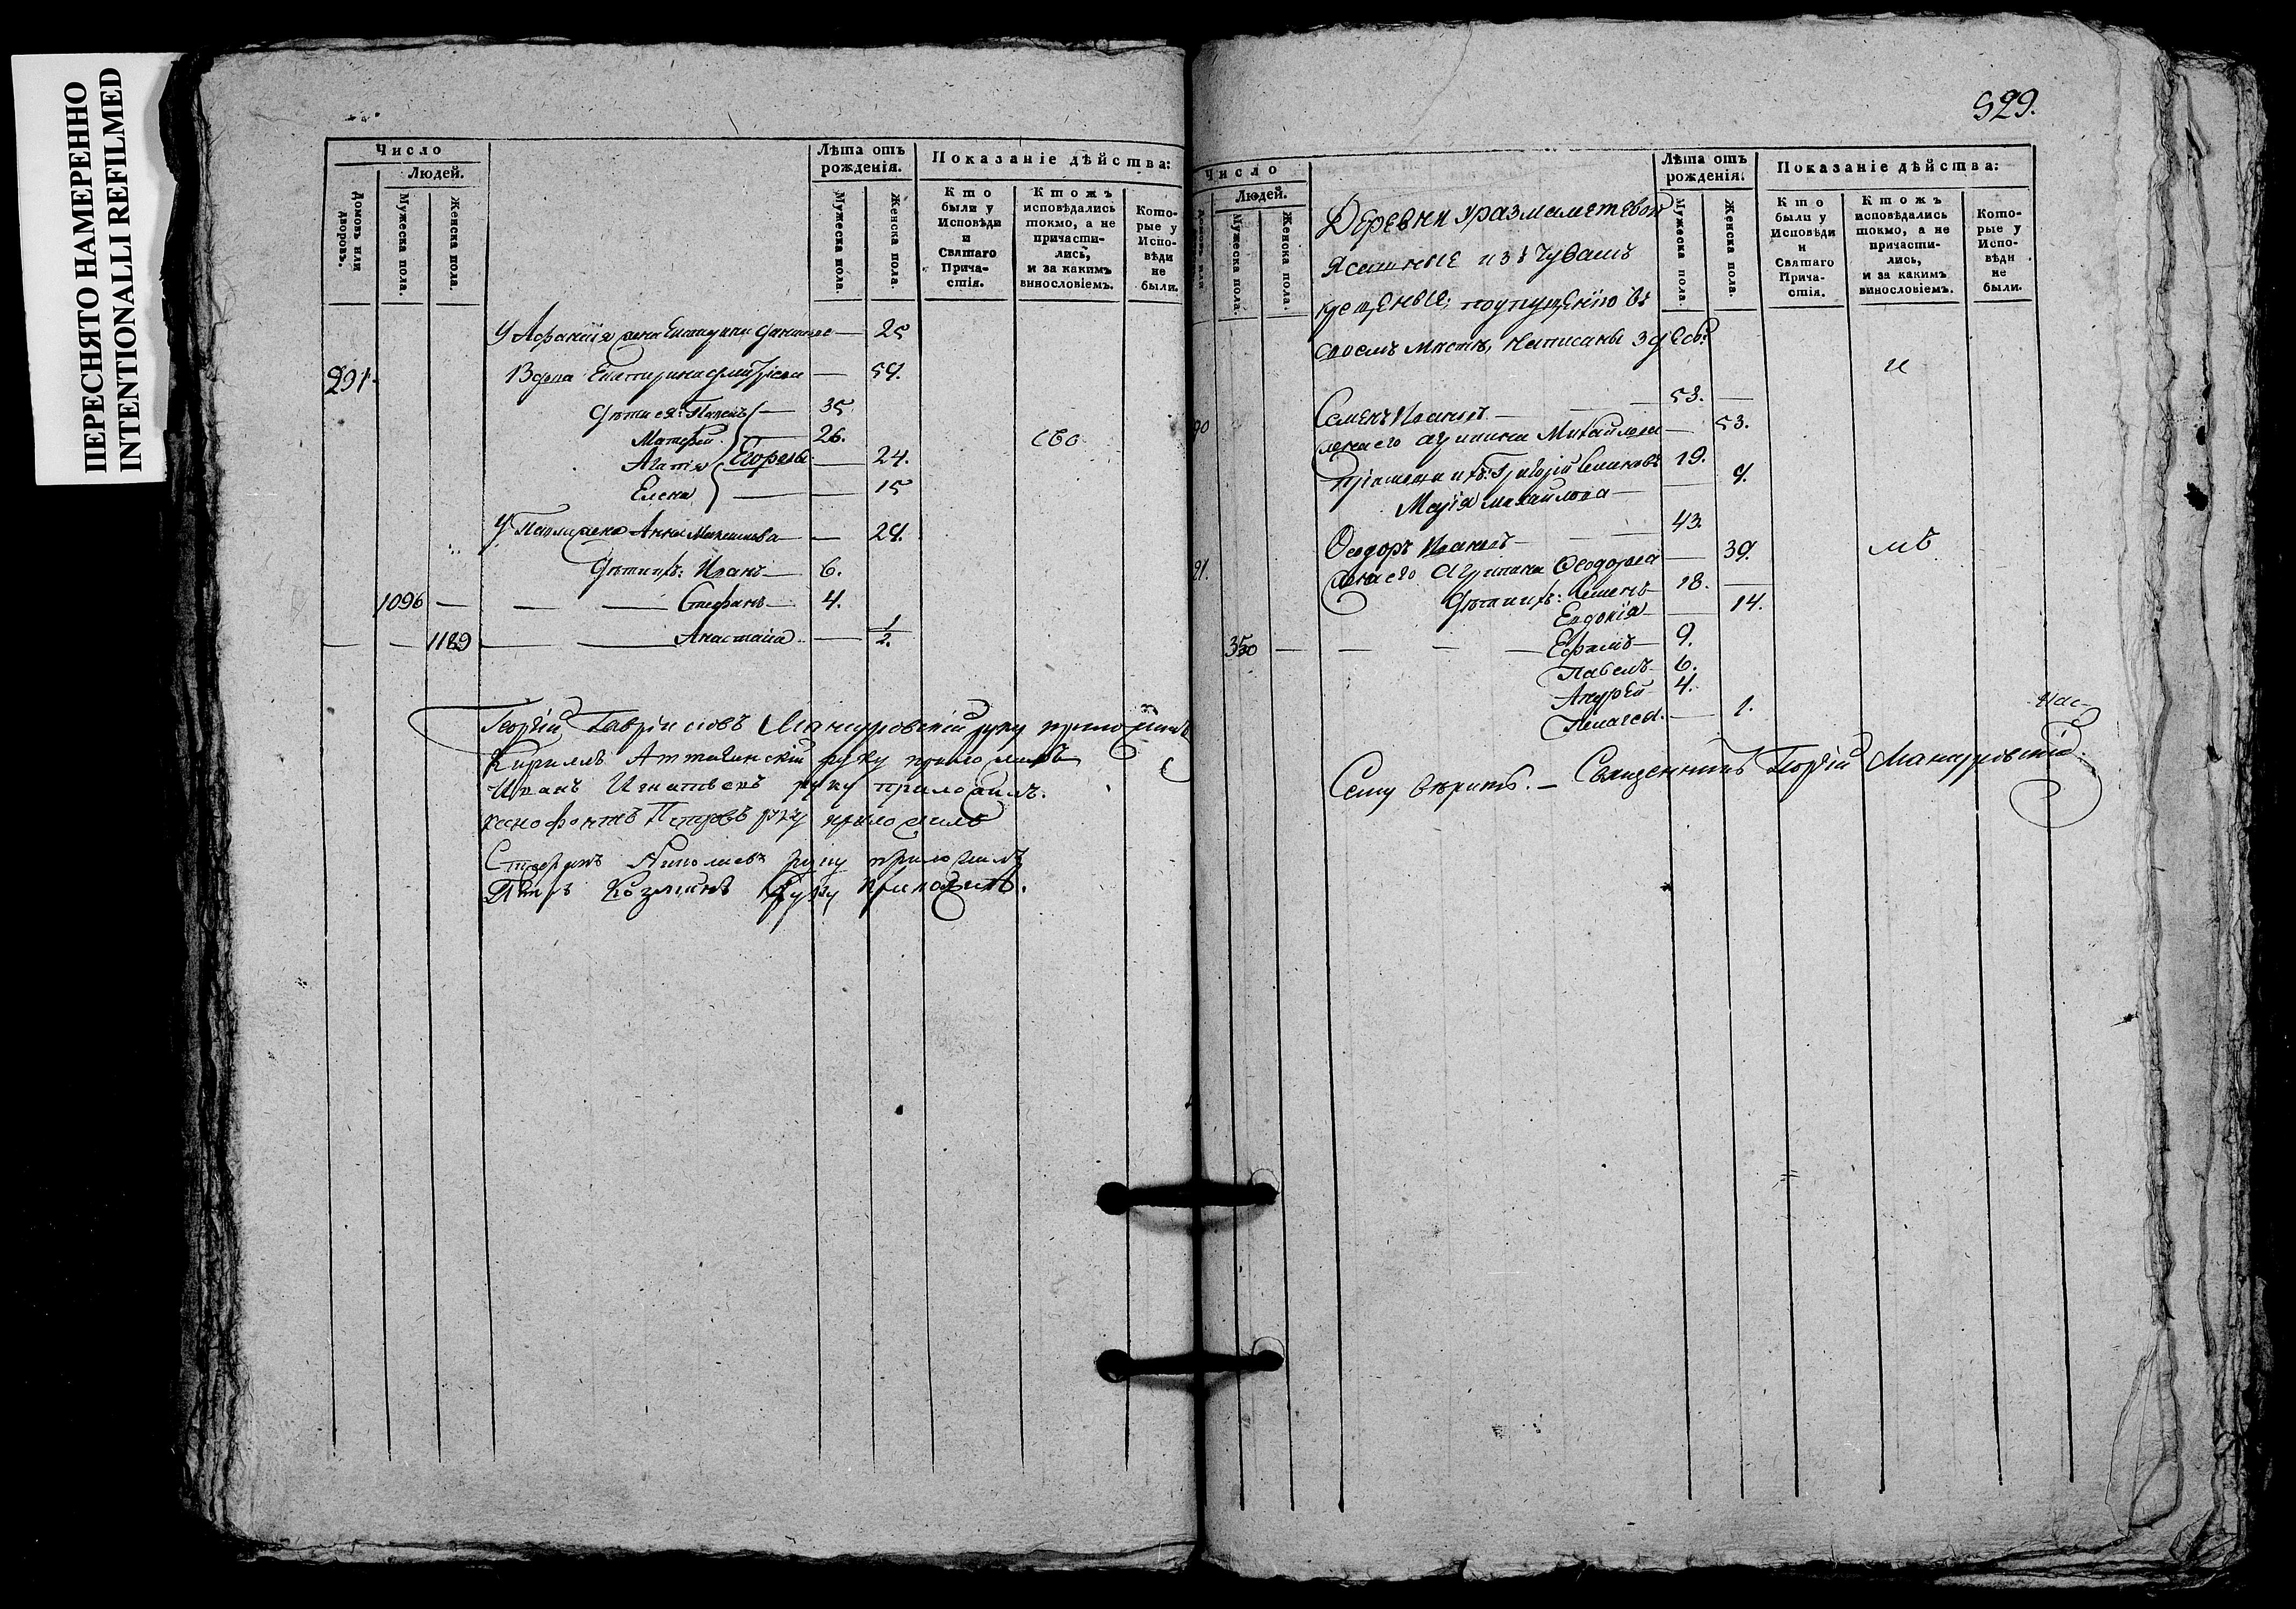 ПЕРЕСНЯТО НАМЕРЕННО
INTENTIONALLI REFILMED
Число
Людей.
Домовъ или дворовъ.
Мужеска пола.
Женска пола.
Лѣта отъ рожденія.
Мужеска пола.
Женска пола.
Показаніе дѣйства:
Кто были у Исповѣди и Святаго Причастія.
Ктожъ исповѣдались токмо, а не причастились, и за какимъ винословіемъ.
Которые у Исповѣди не были.
У Афанасія жена Екатерина — 25
291. Вдова Екатерина — 54.
Дѣти ея: Павелъ — 35
Матфей — 26. сво
Агапія Егоровы — 24.
Елена — 15
У Павла жена Анна — 24.
Дѣти ихъ: Иванъ — 6.
1096 — Стефанъ — 4.
— 1189 — Анастасія — 1/2.
Георгій Гавриловъ Мансуровскій руку приложилъ
Кириллъ руку приложилъ
Иванъ Игнатьевъ руку приложилъ.
Ксенофонтъ Петровъ руку приложилъ
Стефанъ руку приложилъ
Петръ Козминъ руку приложилъ.
529.
Число
Людей.
Мужеска пола.
Женска пола.
Лѣта отъ рожденія.
Мужеска пола.
Женска пола.
Показаніе дѣйства:
Кто были у Исповѣди и Святаго Причастія.
Ктожъ исповѣдались токмо, а не причастились, и за какимъ винословіемъ.
Которые у Исповѣди не были.
Деревни Уразмаметевой
Ясашные изъ Чувашъ
крещеные, попущенію въ
своемъ мѣстѣ, написаны здѣсь.
и
90 Семенъ Ивановъ — 53. —
жена его Агрипина Михайлова — 53.
Григорій Семеновъ 19.
Марія Михайлова — 9.
91. Ѳеодоръ Ивановъ — 43. мѣ
жена его Агрипина Ѳеодорова — 39.
Дѣти ихъ: Семенъ 18. —
Евдокія — 14.
350 — Ефимъ — 9.
Павелъ 6.
Андрей 4.
Пелагея. — 1.
нас-
Сему вѣритъ. — Священникъ Георгій Мансуровскій.